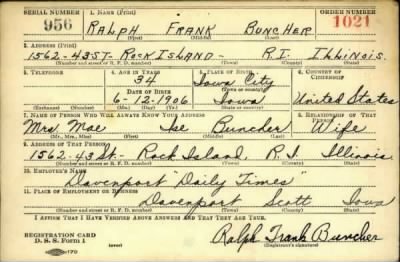 SERIAL NUMBER 1. NAME (Print) ORDER NUMBER
956 RALPH FRANK BUNCHER 1021
(First) (Middle) (Last)
2. ADDRESS (Print)
1562-43 ST- ROCK ISLAND- R.I. ILLINOIS.
(Number and street or R. F. D. number) (Town) (County) (State)
3. TELEPHONE 4. AGE IN YEARS 5. PLACE OF BIRTH 6. COUNTRY OF CITIZENSHIP
34 Iowa City
(Town or county)
DATE OF BIRTH
6-12-1906 Iowa United States
(Exchange) (Number) (Mo.) (Day) (Yr.) (State or country)
7. NAME OF PERSON WHO WILL ALWAYS KNOW YOUR ADDRESS 8. RELATIONSHIP OF THAT PERSON
Mrs Mae Buncher Wife
(Mr., Mrs., Miss) (First) (Middle) (Last)
9. ADDRESS OF THAT PERSON
1562-43 St- Rock Island, R.I. Illinois
(Number and street or R. F. D. number) (Town) (County) (State)
10. EMPLOYER'S NAME
Davenport "Daily Times"
11. PLACE OF EMPLOYMENT OR BUSINESS
Davenport Scott Iowa
(Number and street or R. F. D. number) (Town) (County) (State)
I AFFIRM THAT I HAVE VERIFIED ABOVE ANSWERS AND THAT THEY ARE TRUE.
REGISTRATION CARD
D. S. S. Form 1 Ralph Frank Buncher
(over) (Registrant's signature)